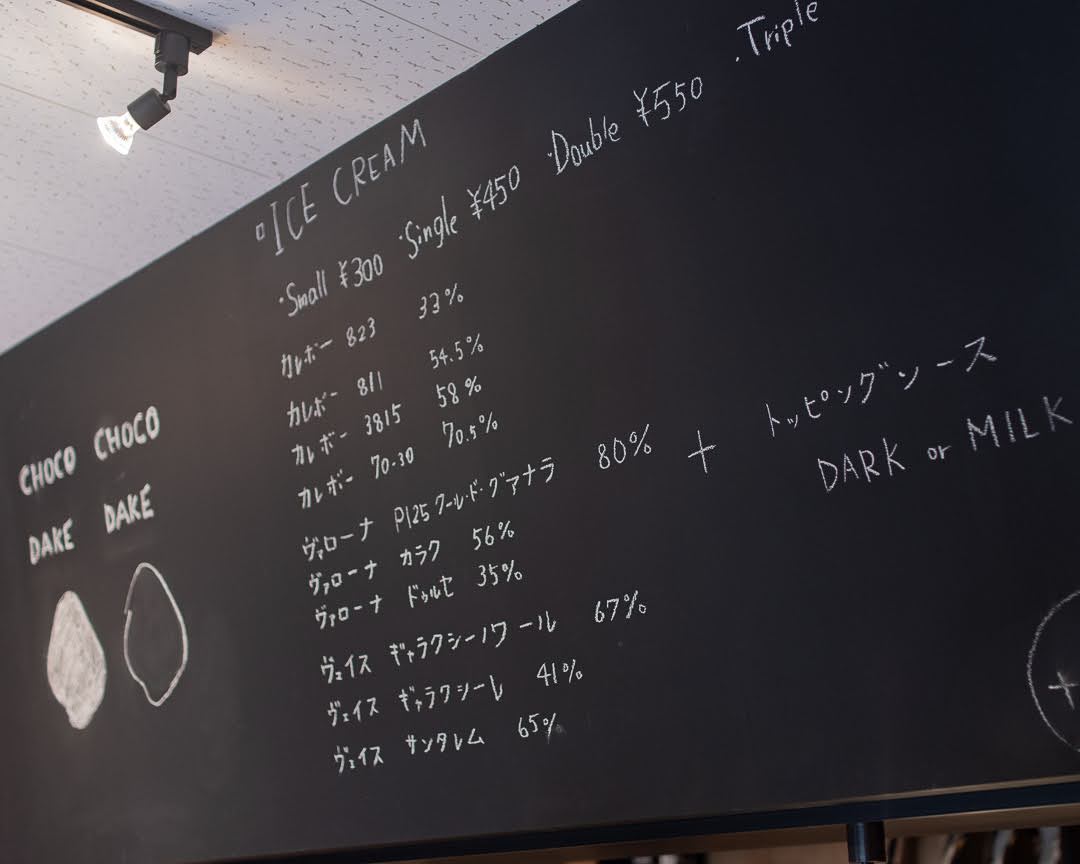 ICE CREAM
・Small ¥300 ・Single ¥450 ・Double ¥550 ・Triple
カレボー 823 33%
カレボー 811 54.5%
カレボー 3815 58%
カレボー 70.30 70.5%
ヴァローナ P125 クール・ド・グアナラ 80%
ヴァローナ カラク 56%
ヴァローナ ドゥルセ 35%
ヴェイス ギャラクシーノワール 67%
ヴェイス ギャラクシーレ 41%
ヴェイス サンタレム 65%
+ トッピングソース
DARK or MILK
CHOCO CHOCO
DAKE DAKE
+